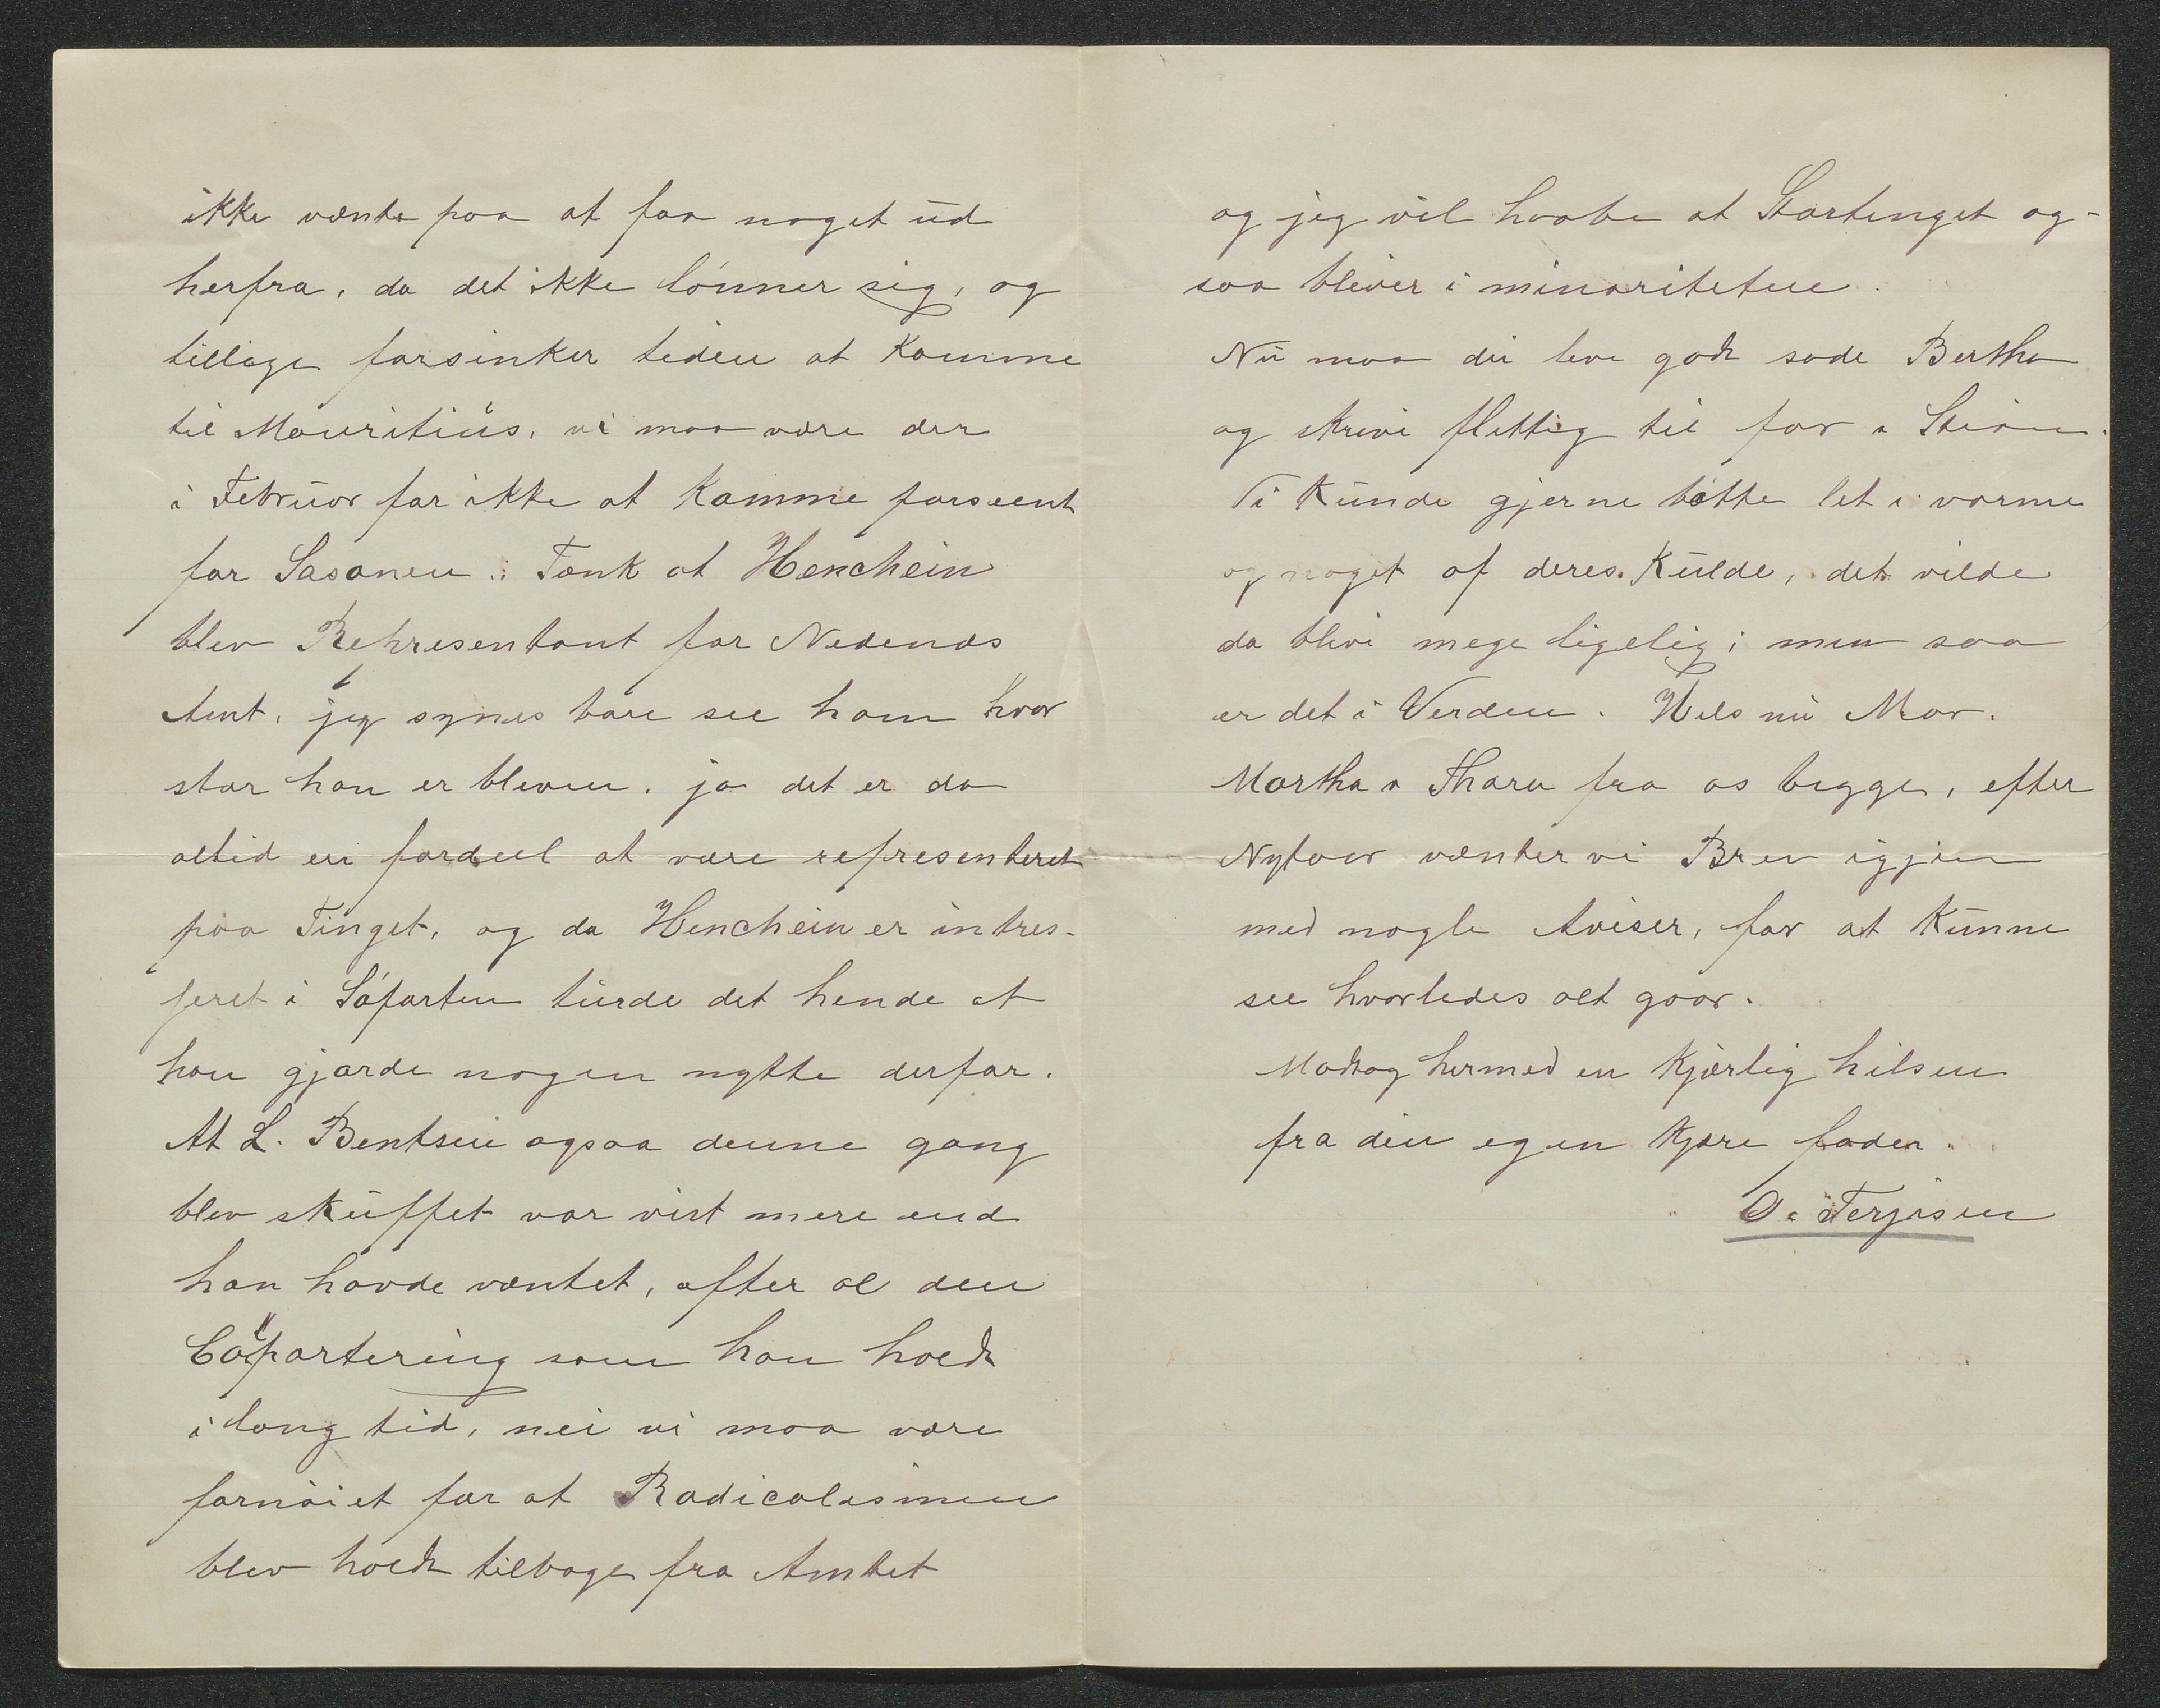 ikke vænte paa at faa noget ud
herfra, da det ikke lønner sig, og
tillige forsinker tiden at komme
til Mauritius, vi maa være der
i Februar for ikke at komme forseent
for Sasonen. Tænk at Henchein
blev Representant for Nedenæs
Amt, jeg synes bare see ham hvor
stor han er bleven, ja det er da
altid en fordeel at være representeret
paa Tinget, og da Henchein er intres-
seret i Søfarten turde det hende at
han gjorde nogen nytte derfor.
At L. Bentsen ogsaa denne gang
blev skuffet var vist mere end
han havde væntet, efter al den
som han holdt
i lang tid, nei vi maa være
fornøiet for at Radicalismen
blev holdt tilbage fra Amtet
og jeg vil haabe at Stortinget og-
saa bliver i minoriteten.
Nu maa du leve godt søde Bertha
og skrive flittig til far &
Vi kunde gjerne bøtte let i varme
og noget af deres Kulde, det vilde
da blive mege ligelig; men saa
er det i Verden. Hils nu Mor.
Martha & Thara fra os begge, efter
Nytaar vænter vi Brev igjen
med nogle Aviser, for at kunne
see hvorledes alt gaar.
Modtag hermed en Kjærlig hilsen
fra din egen Kjære fader.
O. Terjesen